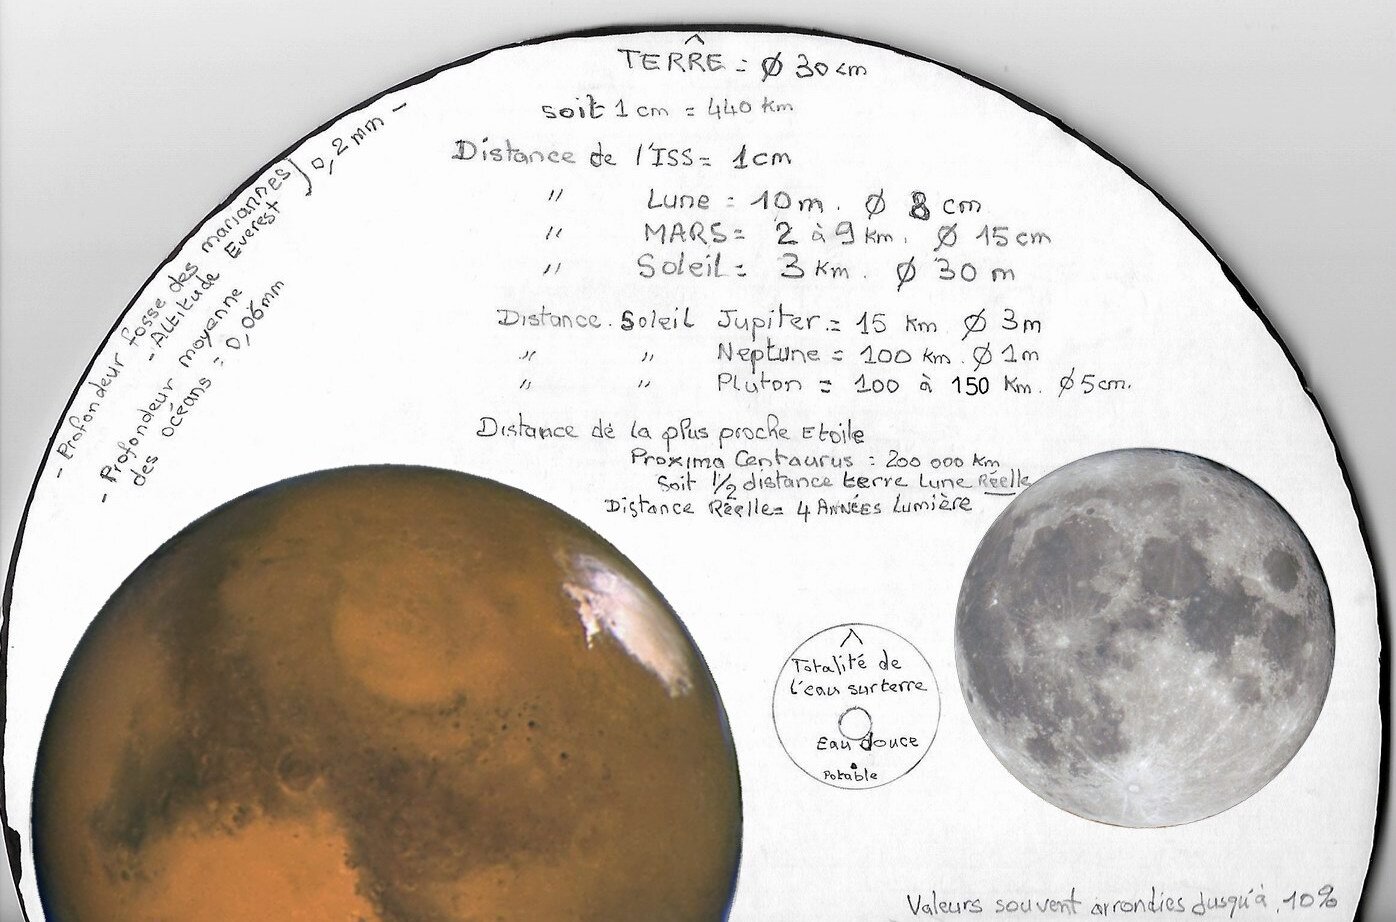 TERRE = Ø 30 cm
soit 1 cm = 440 km
Distance de l'ISS = 1 cm
" Lune = 10 m. Ø 8 cm
" MARS = 2 à 9 km. Ø 15 cm
" Soleil = 3 km. Ø 30 m
Distance. Soleil Jupiter = 15 km Ø 3 m
" " Neptune = 100 km. Ø 1 m
" " Pluton = 100 à 150 Km. Ø 5 cm.
Distance de la plus proche Etoile
Proxima Centaurus : 200 000 km
Soit 1/2 distance terre Lune Réelle
Distance Réelle = 4 ANNÉES Lumière
- Profondeur fosse des mariannes
- Altitude Everest
) 0,2 mm -
- Profondeur moyenne
des océans = 0,06 mm
Totalité de
l'eau sur terre
Eau douce
Potable
Valeurs souvent arrondies jusqu'à 10%